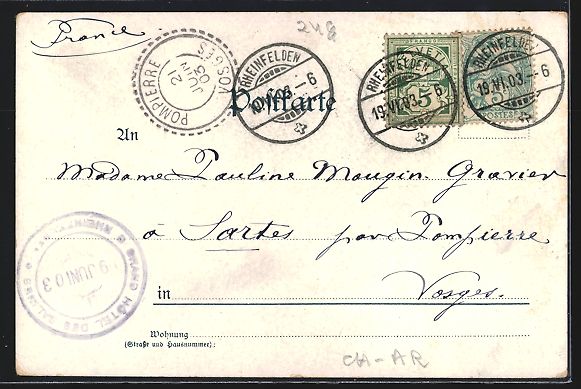 France
248
POMPIERRE VOSGES
2 JUIN 03
RHEINFELDEN
19.VI.03.-6
RHEINFELDEN
19.VI.03.-6
RHEINFELDEN
19.VI.03.-6
FRANCO
HELVETIA
5
POSTES
Postkarte
An
Madame Pauline Mougin-Gravier
à Sartes par Pompierre
in Vosges.
GRAND HÔTEL DES SALINES
RHEINFELDEN
9 JUNI 03
Wohnung
(Straße und Hausnummer):
CH-AR